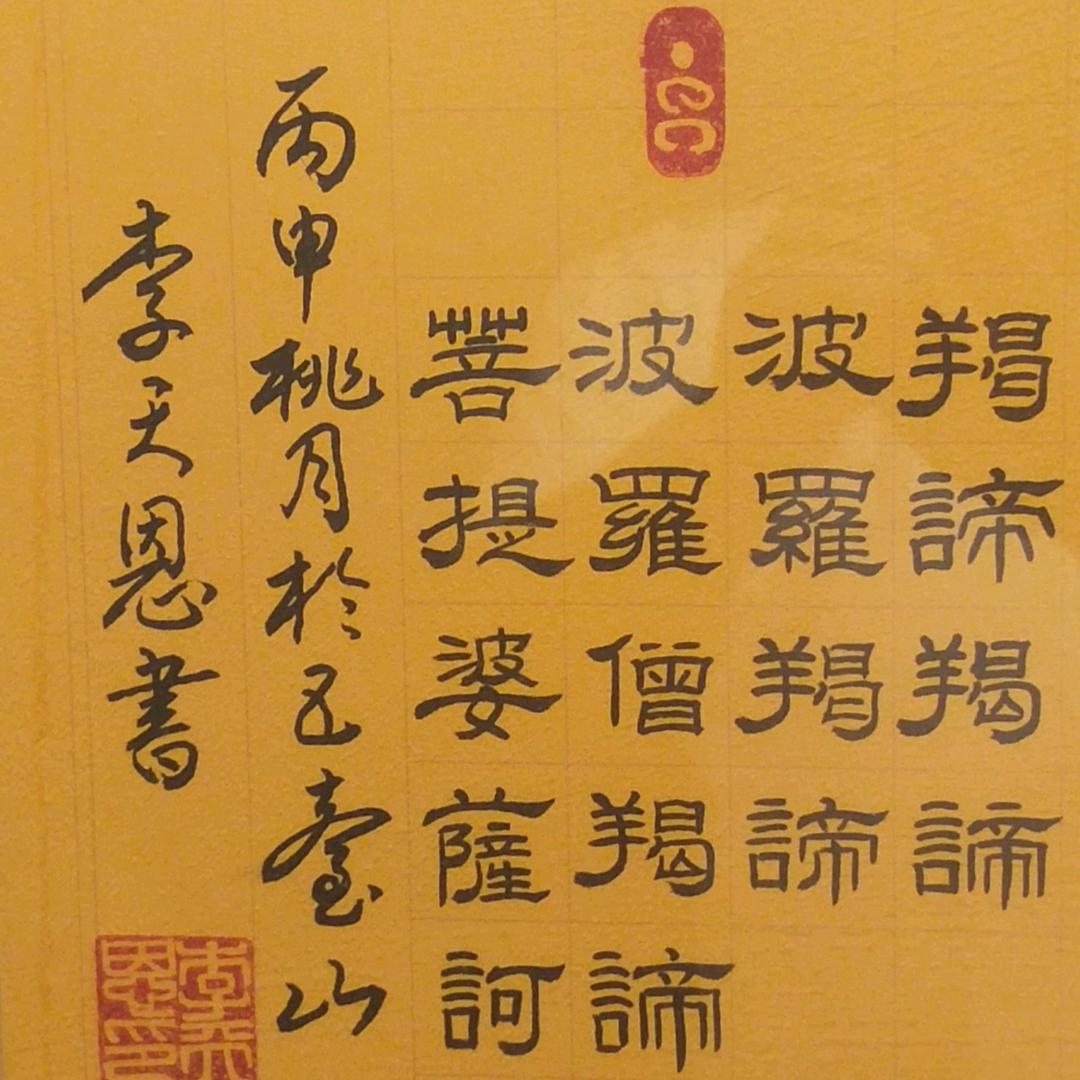 羯諦羯諦
波羅羯諦
波羅僧羯諦
菩提婆薩訶
丙申桃月於五臺山
李天恩書
李天恩印